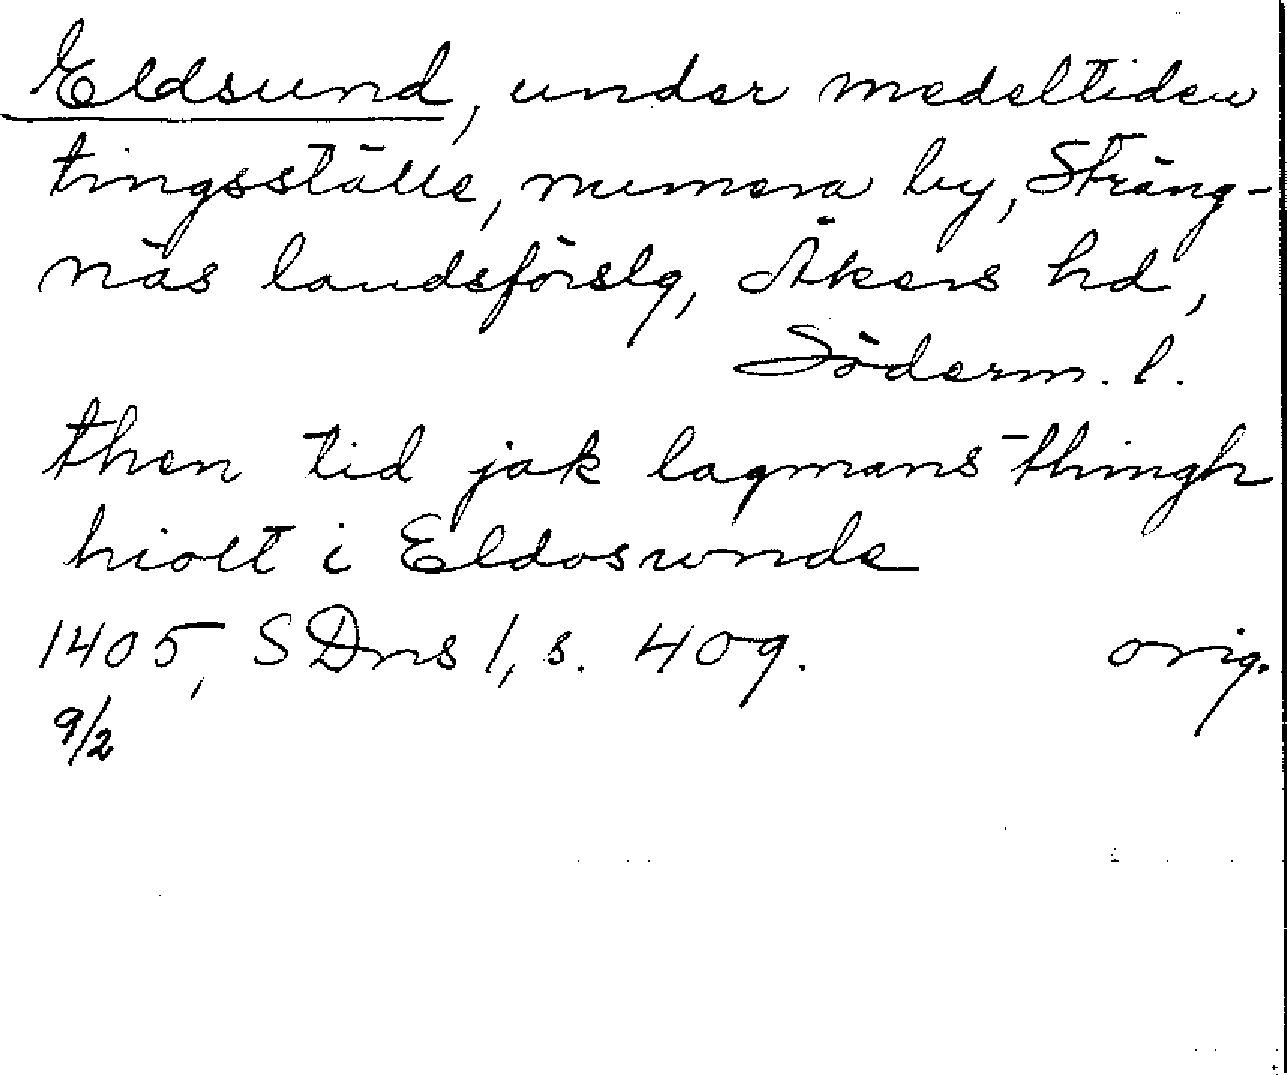 Eldsund, under medeltiden
tingsställe, numera by, Sträng-
näs landsförslg, Åkers hd,
Söderm. l.
then tid jak lagmans thingh
hiolt i Eldosunde
1405, SDns 1, s. 409. orig.
9/2